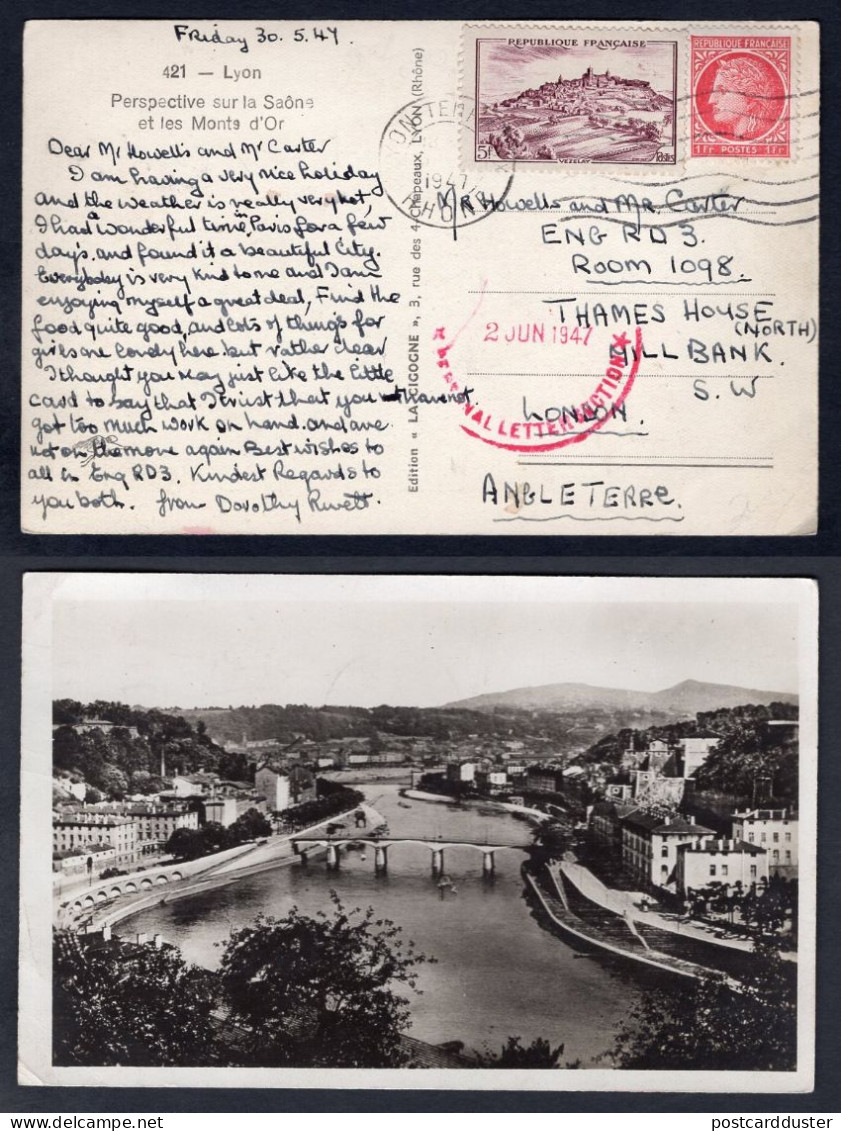 Friday 30. 5. 47.
421 — Lyon
Perspective sur la Saône
et les Monts d'Or
Dear Mr Howells and Mr Carter
I am having a very nice holiday
and the weather is really very hot,
I had a wonderful time in Paris for a few
days. and found it a beautiful City.
Everybody is very kind to me and I am
enjoying myself a great deal, Find the
food quite good, and lots of things for
gives are lovely here but rather dear
I thought you may just like the little
card to say that I trust that you haven't
got too much work on hand. and are
not on the move again Best wishes to
all in Eng RD3. Kindest Regards to
you both. from Dorothy
Edition « LA CIGOGNE », 3, rue des 4 Chapeaux, LYON (Rhône)
REPUBLIQUE FRANÇAISE
5F
VEZELAY
POSTES
REPUBLIQUE FRANÇAISE
1Fr POSTES 1Fr
1947
RHONE
Mr. Howells and Mr. Carter
ENG RD3.
ROOM 1098.
THAMES HOUSE
(NORTH)
MILLBANK.
S.W
LONDON.
ANGLETERRE.
2 JUN 1947
PERSONAL LETTER SECTION
postcardduster